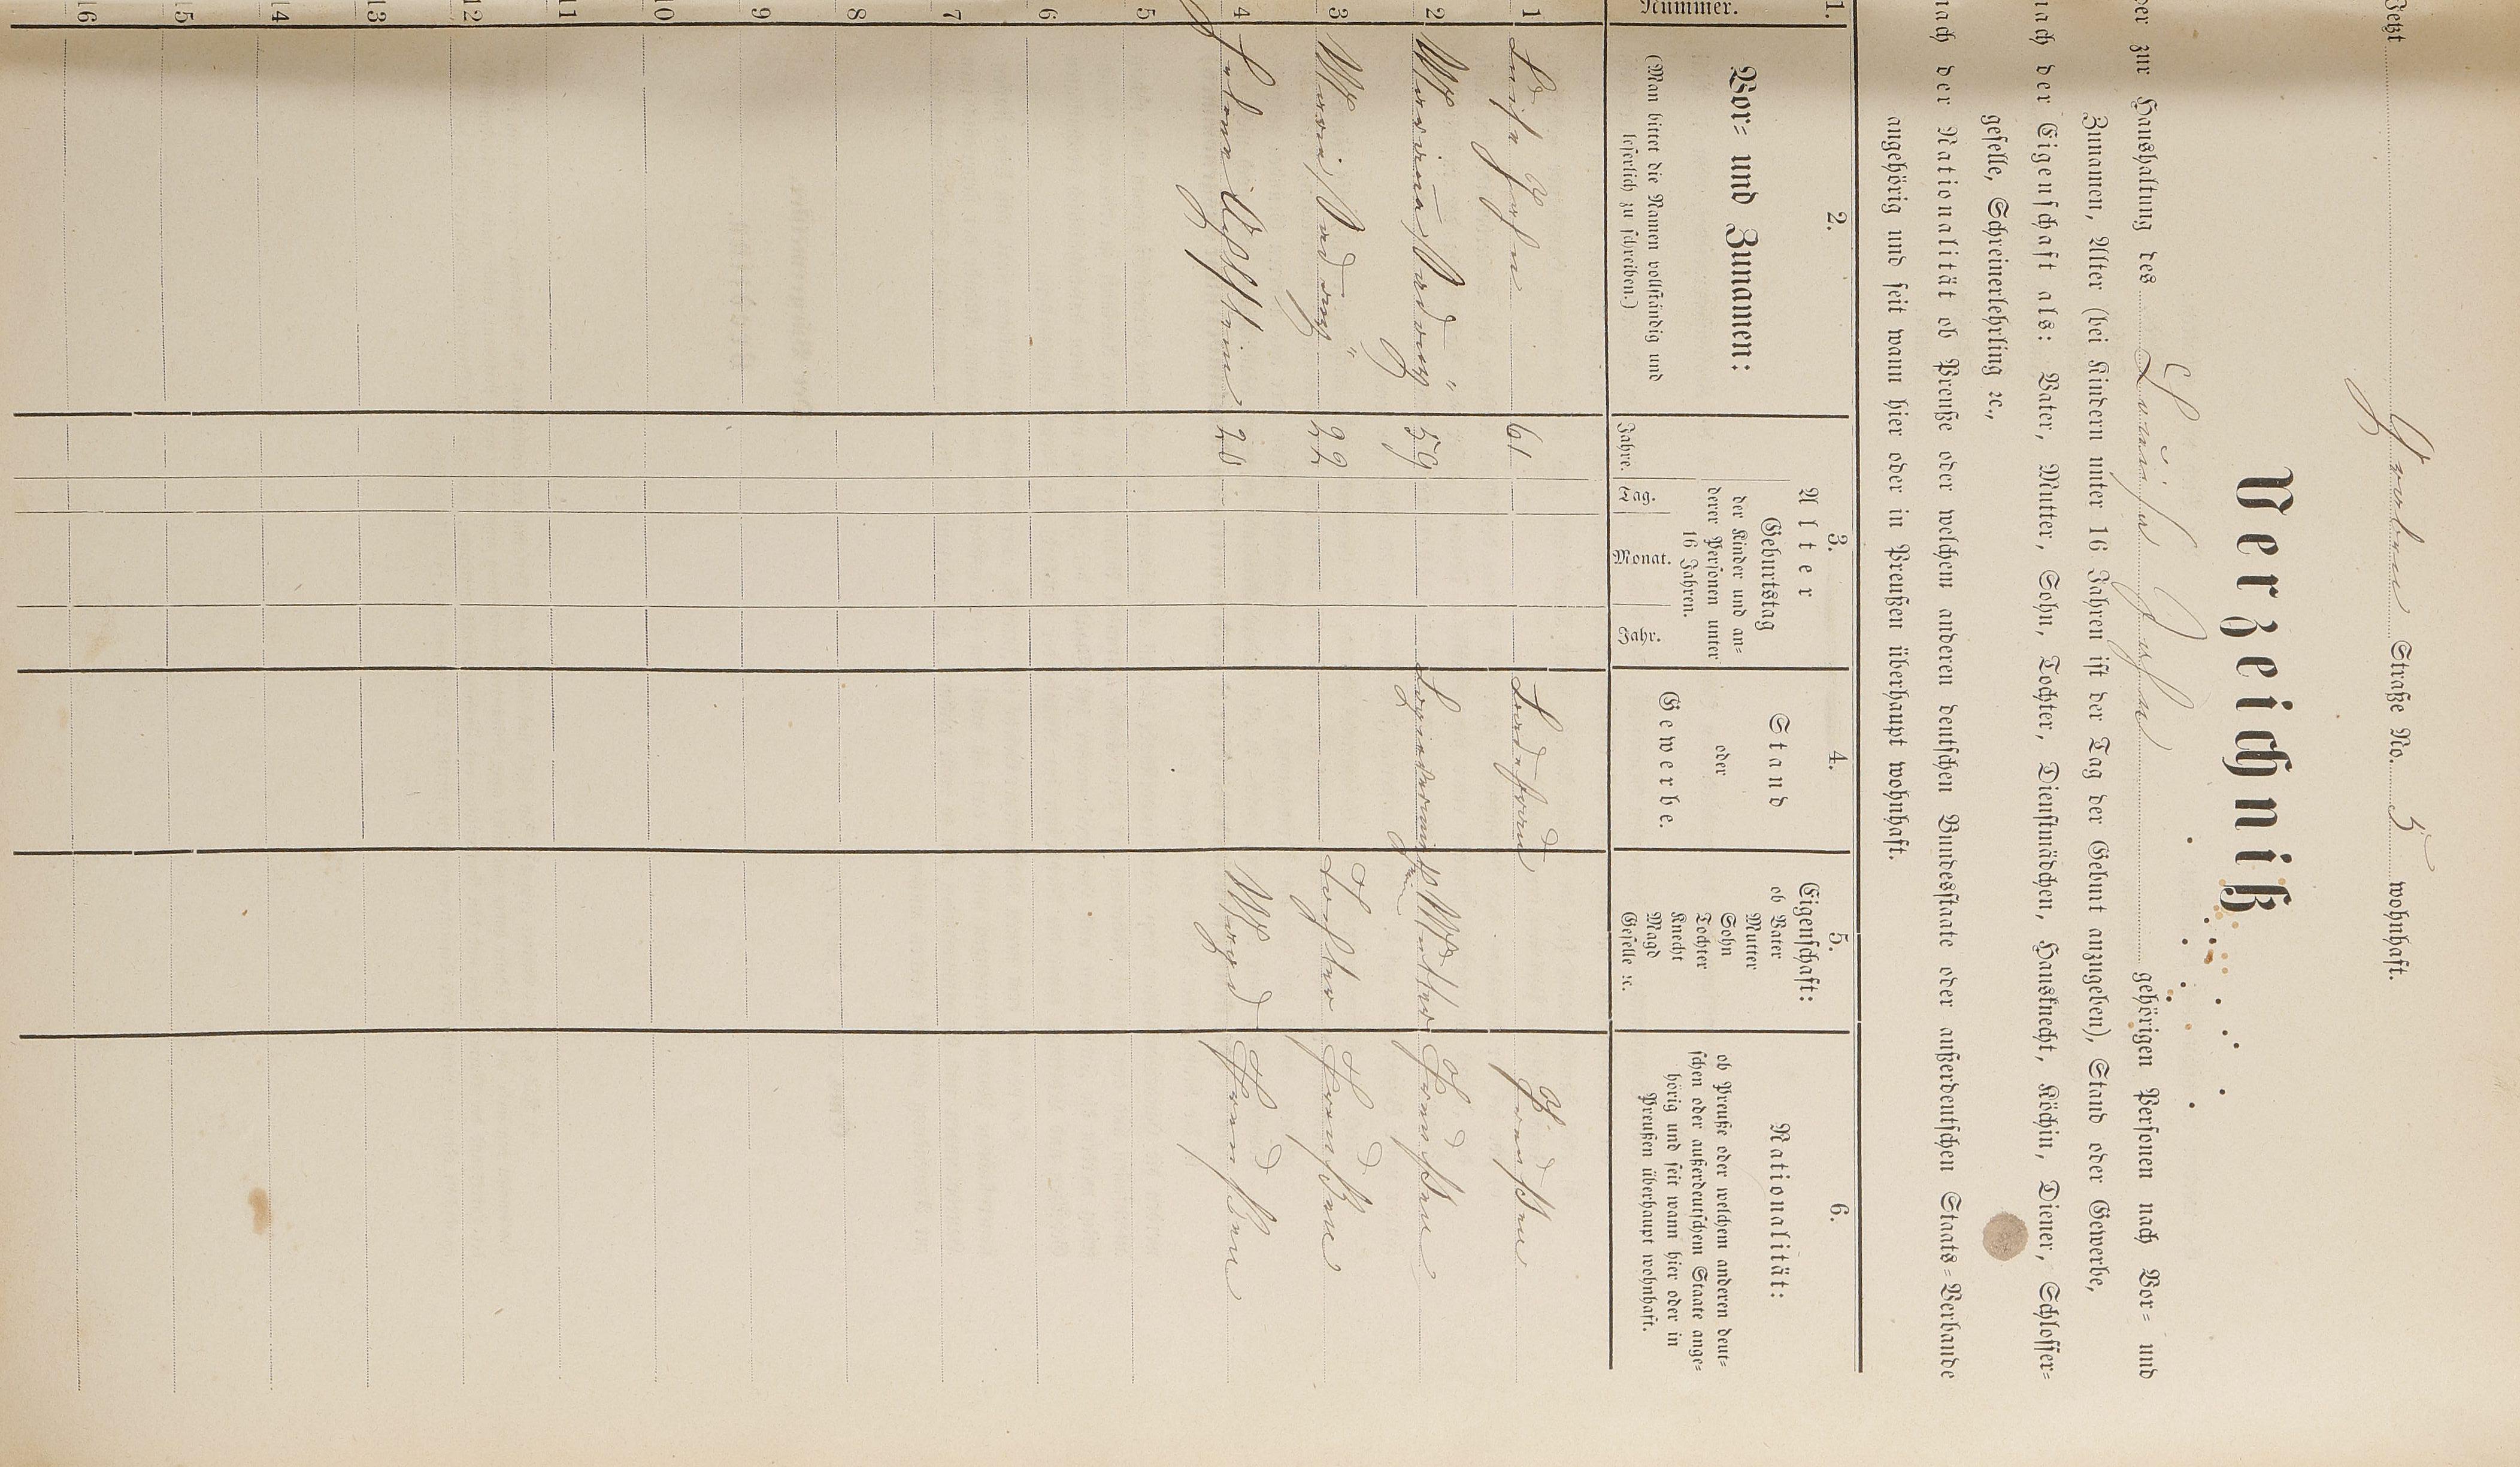 Jetzt Graben Straße No. 5 wohnhaft.
Verzeichniß
der zur Haushaltung des Luise Jahn gehörigen Personen nach Vor= und
Zunamen, Alter (bei Kindern unter 16 Jahren ist der Tag der Geburt anzugeben), Stand oder Gewerbe,
nach der Eigenschaft als: Vater, Mutter, Sohn, Tochter, Dienstmädchen, Hausknecht, Köchin, Diener, Schlosser=
geselle, Schreinerlehrling ꝛc.,
nach der Nationalität ob Preuße oder welchem anderen deutschen Bundesstaate oder außerdeutschen Staats=Verbande
angehörig und seit wann hier oder in Preußen überhaupt wohnhaft.
1. 2. 3. 4. 5. 6.
Nummer.
Vor= und Zunamen:
(Man bittet die Namen vollständig und
leserlich zu schreiben.)
Alter
Geburtstag
der Kinder und an=
derer Personen unter
16 Jahren.
Jahre. Tag. Monat. Jahr.
Stand
oder
Gewerbe.
Eigenschaft:
ob Vater
Mutter
Sohn
Tochter
Knecht
Magd
Geselle ꝛc.
Nationalität:
ob Preuße oder welchem anderen deut=
schen oder außerdeutschem Staate ange=
hörig und seit wann hier oder in
Preußen überhaupt wohnhaft.
1 Luise Jahn 61 Preußen
2 59 Mutter Preußen
3 Maria 22 Tochter Preußen
4 Helene 20 Magd Preußen
5
6
7
8
9
10
11
12
13
14
15
16